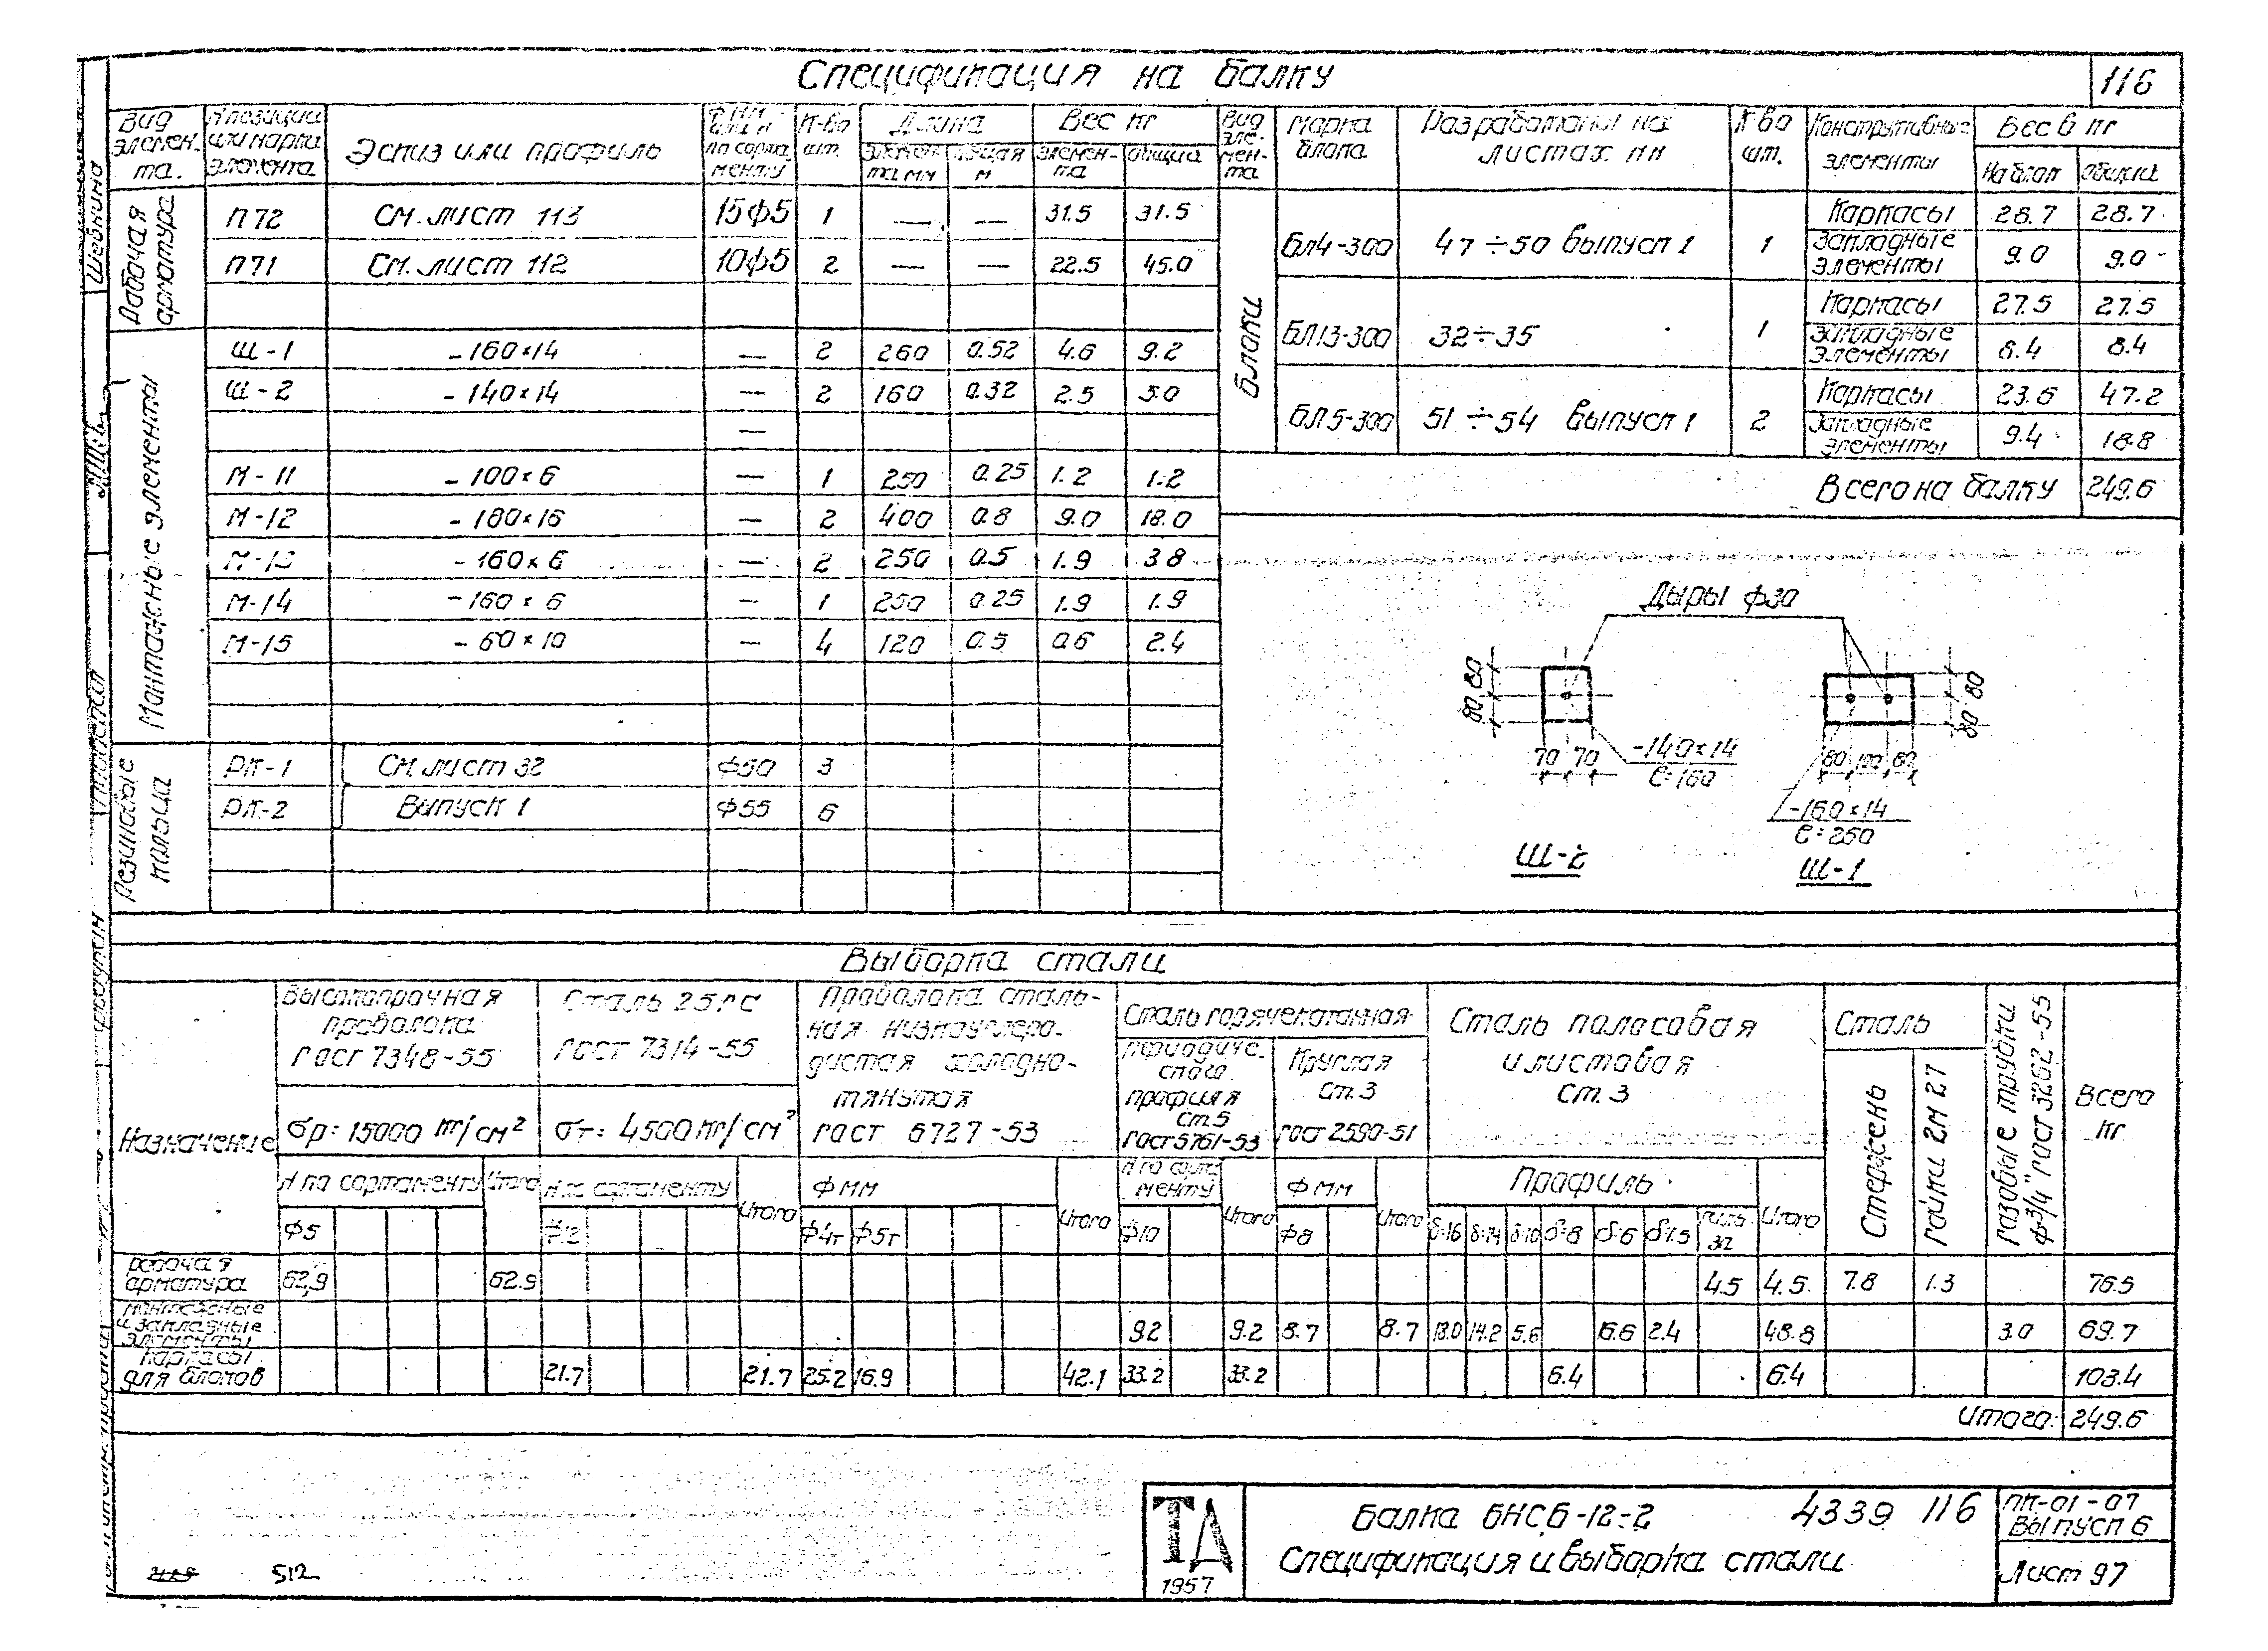 Спецификация на балку
116
Вид элемен. та. | N позиции или марка элемента | Эскиз или профиль | по сорта менту | К-во шт. | Длина | элемен та мм | общая м | Вес кг | элемен- та | общий
Рабочая арматура
П72 | См. лист 113 | 15ф5 | 1 | — | — | 31.5 | 31.5
П71 | См. лист 112 | 10ф5 | 2 | — | — | 22.5 | 45.0
Монтажные элементы
Ш-1 | -160×14 | — | 2 | 260 | 0.52 | 4.6 | 9.2
Ш-2 | -140×14 | — | 2 | 160 | 0.32 | 2.5 | 5.0
—
М-11 | -100×6 | — | 1 | 250 | 0.25 | 1.2 | 1.2
М-12 | -180×16 | — | 2 | 400 | 0.8 | 9.0 | 18.0
М-13 | -160×6 | — | 2 | 250 | 0.5 | 1.9 | 3.8
М-14 | -160×6 | — | 1 | 250 | 0.25 | 1.9 | 1.9
М-15 | -60×10 | — | 4 | 120 | 0.5 | 0.6 | 2.4
Резиновые кольца
РК-1 | См. лист 32 | ф50 | 3
РК-2 | Выпуск 1 | ф55 | 6
Вид эле- мен- та | Марка блока | Разработаны на листах NN | К-во шт. | Конструктивные элементы | Вес в кг | На блок | Общий
Блоки
Бл4-300 | 47÷50 Выпуск 1 | 1 | Каркасы | 28.7 | 28.7
Закладные элементы | 9.0 | 9.0
БЛ13-300 | 32÷35 | 1 | Каркасы | 27.5 | 27.5
Закладные элементы | 8.4 | 8.4
БЛ5-300 | 51÷54 Выпуск 1 | 2 | Каркасы | 23.6 | 47.2
Закладные элементы | 9.4 | 18.8
Всего на балку | 249.6
Дыры ф30
80 80
70 70
-140×14
ℓ=160
Ш-2
80 80
80 100 80
-160×14
ℓ=260
Ш-1
Выборка стали
Назначение
Высокопрочная проволока ГОСТ 7348-55
σр=15000 кг/см²
N по сортаменту | Итого
ф5
Сталь 25ГС ГОСТ 7314-55
σт=4500 кг/см²
N по сортаменту | Итого
ф12
Проволока сталь- ная низкоуглеро- дистая холодно- тянутая ГОСТ 6727-53
ф мм | Итого
ф4т | ф5т
Сталь горячекатанная
периодиче- ского профиля Ст.5 ГОСТ 5781-53
N по сорта менту | Итого
ф10
Круглая Ст.3 ГОСТ 2590-51
ф мм | Итого
ф8
Сталь полосовая и листовая Ст. 3
Профиль | Итого
δ=16 | δ=14 | δ=10 | δ=8 | δ=6 | δ=1.5
Сталь
Стержень | Гайки 2М 27
Газовые трубки ф 3/4" ГОСТ 3262-55
Всего кг
рабочая арматура | 62.9 | 62.9 | 4.5 | 4.5 | 7.8 | 1.3 | 76.5
монтажные и закладные элементы | 9.2 | 9.2 | 8.7 | 8.7 | 18.0 | 14.2 | 5.6 | 6.6 | 2.4 | 48.8 | 3.0 | 69.7
Каркасы для блоков | 21.7 | 21.7 | 25.2 | 16.9 | 42.1 | 33.2 | 33.2 | 6.4 | 6.4 | 103.4
Итого: | 249.6
ТД
1957
Балка БНСБ-12-2 4339 116
Спецификация и выборка стали
ПК-01-07
Выпуск 6
Лист 97
512
Шевкина